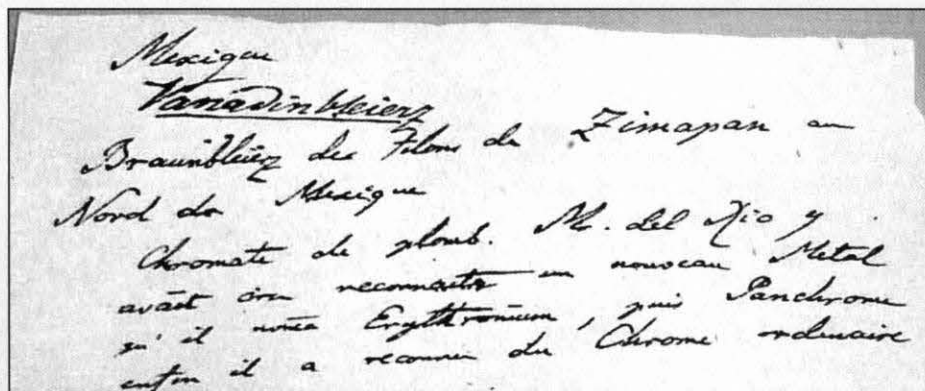 Mexique
Vanadinbleierz
Braunbleierz des Filons de Zimapan au
Nord de Mexique
Chromate de plomb. M. del Rio y
avait cru reconnaitre un nouveau Metal
qu'il nomma Erythronium, puis Panchrome
enfin il a reconnu du Chrome ordinaire